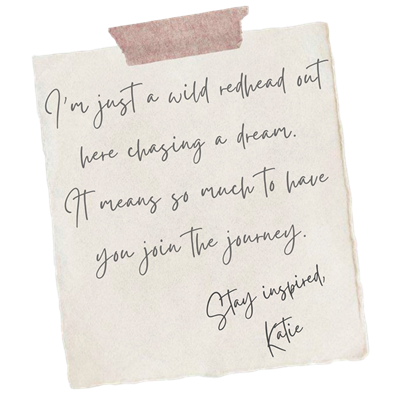 I'm just a wild redhead out
here chasing a dream.
It means so much to have
you join the journey.
Stay inspired,
Katie